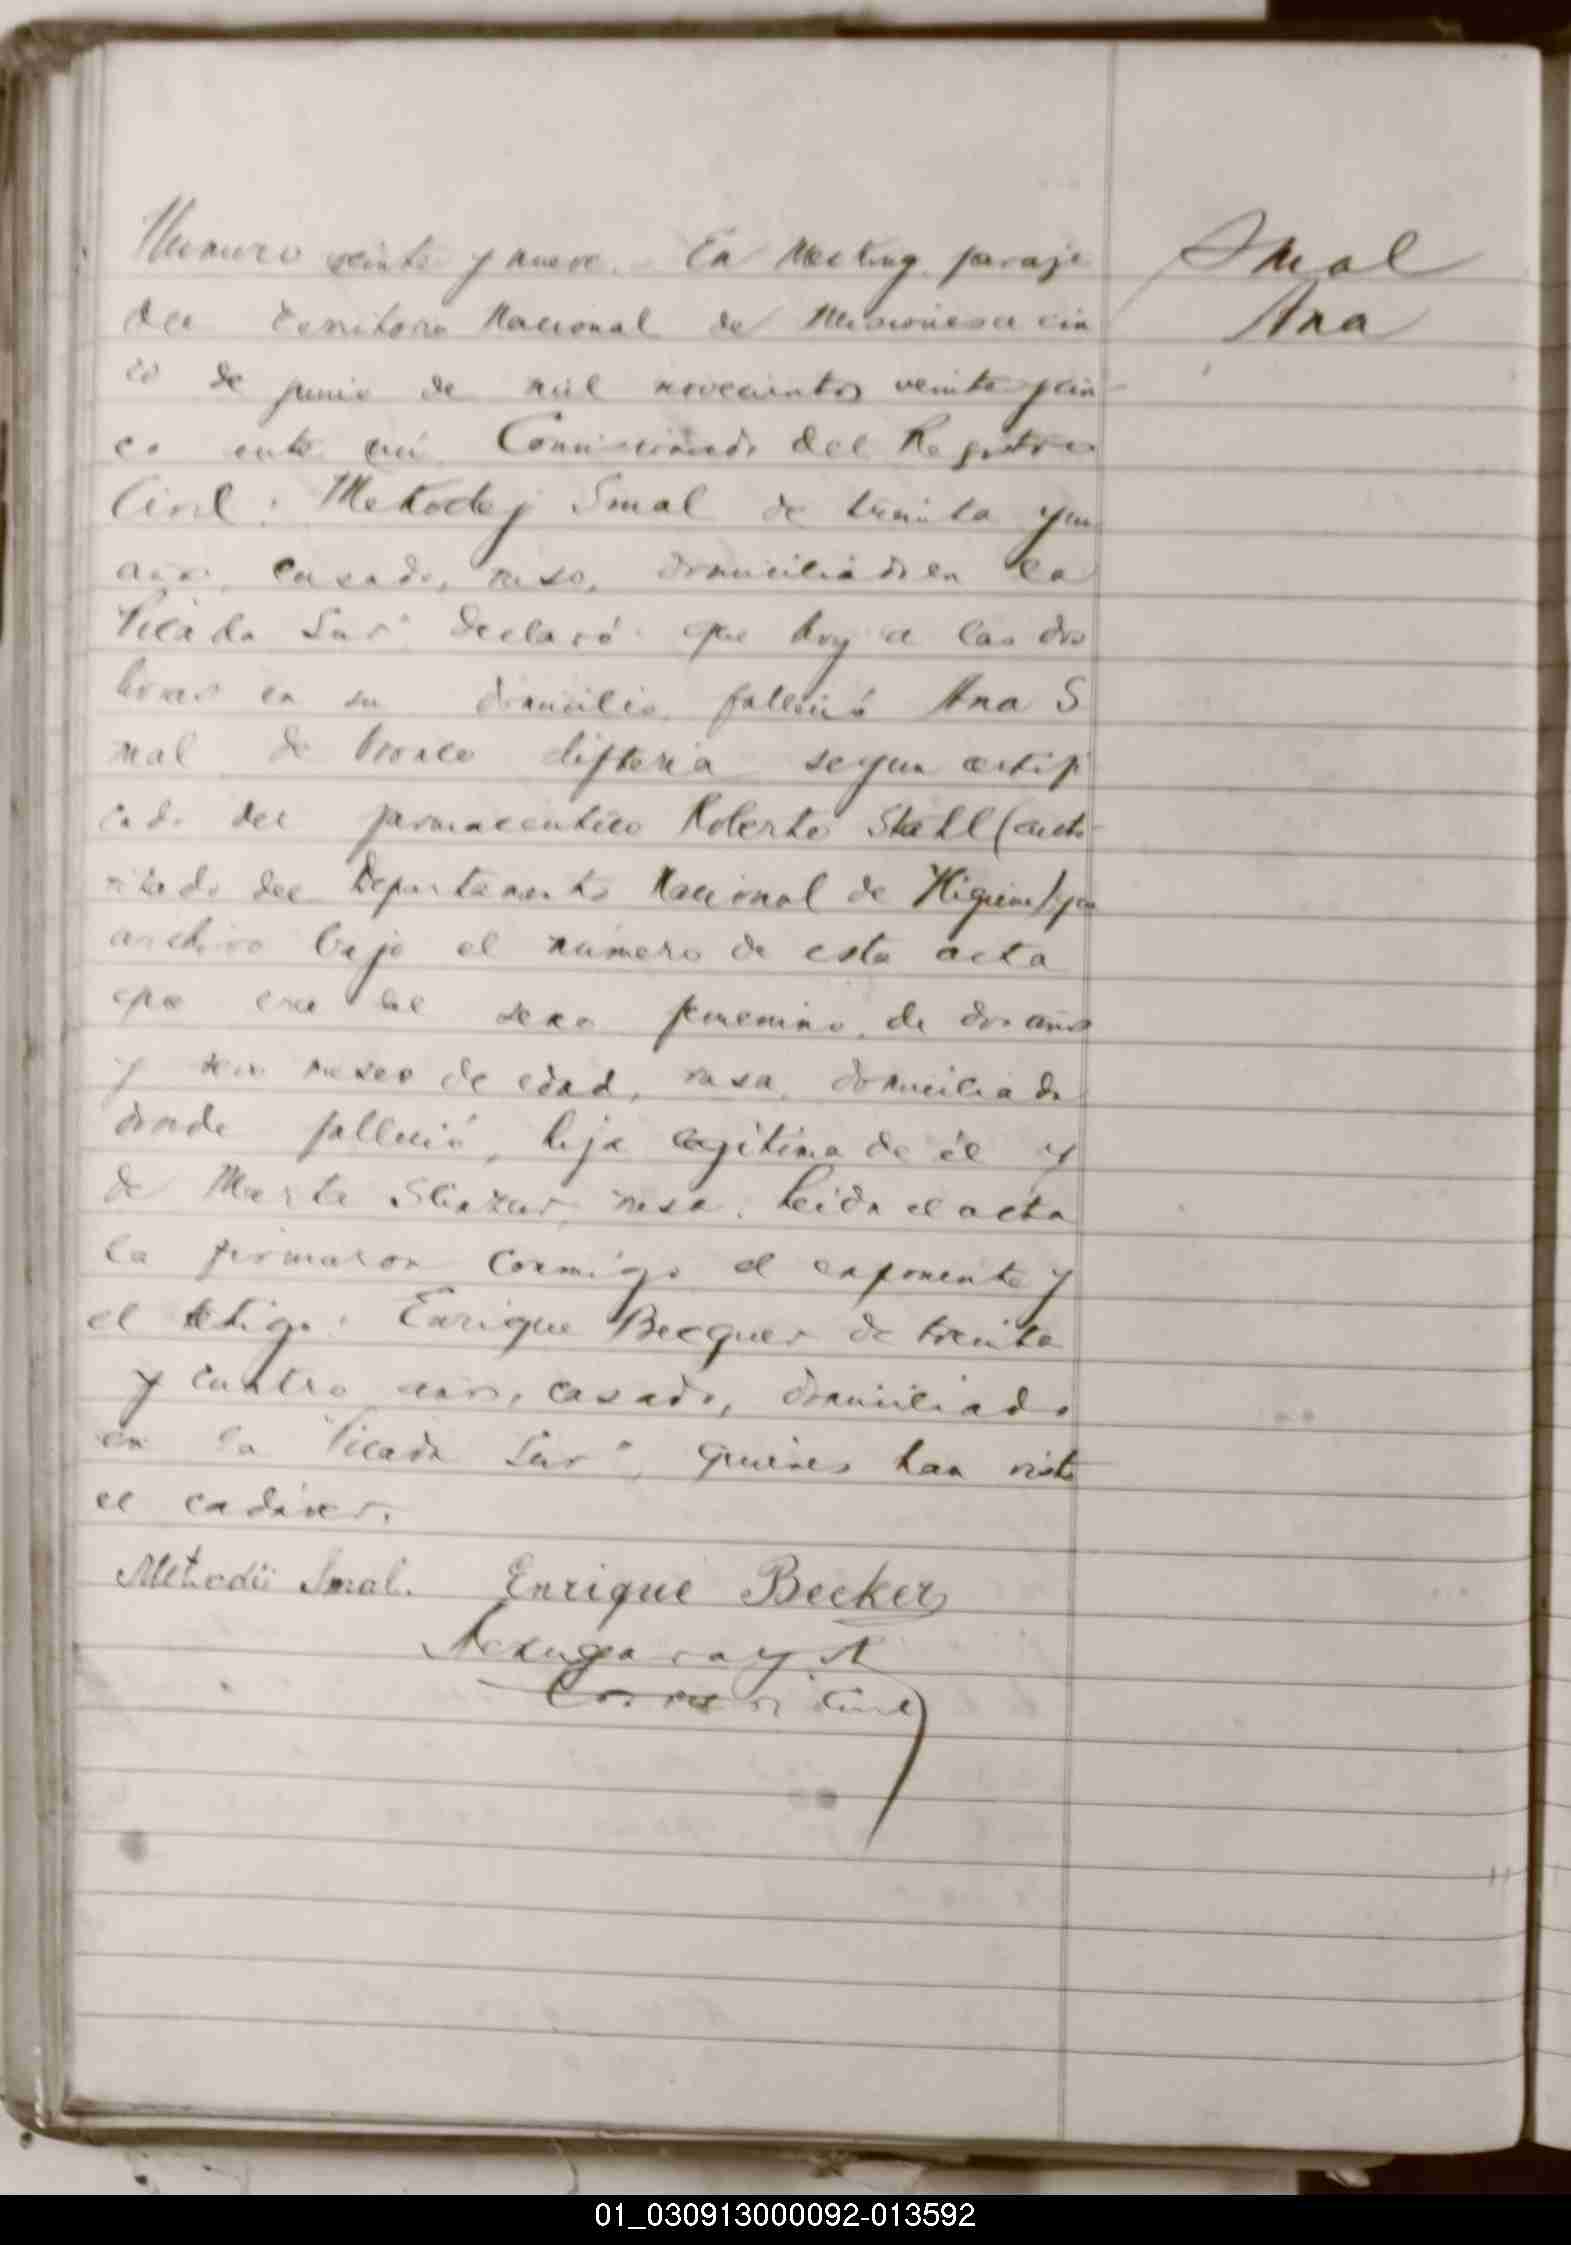 Numero veinte y nueve. En Mecking paraje
del Territorio Nacional de Misiones a cin
co de junio de mil novecientos veinte y cin
co ante mi Comisionado del Registro
Civil: Metodej Smal de treinta y un
años, casado, ruso, domiciliado en la
"Picada Sur" declaró que hoy a las dos
horas en su domicilio, falleció Ana S
mal de bronco difteria segun certifi
cado del farmaceutico Roberto Stahl (auto
rizado del Departamento Nacional de Higiene) que
archivo bajo el número de esta acta
que era del sexo femenino, de dos años
y seis meses de edad, rusa, domiciliada
donde falleció, hija legitima de él y
de Marta rusa. Leida el acta
la firmaron conmigo el exponente y
el testigo: Enrique Becquer de treinta
y cuatro años, casado, domiciliado
en la "Picada Sur", quienes han visto
el cadáver.
Metodii Smal. Enrique Becker
Civil
Smal
Ana
01_030913000092-013592